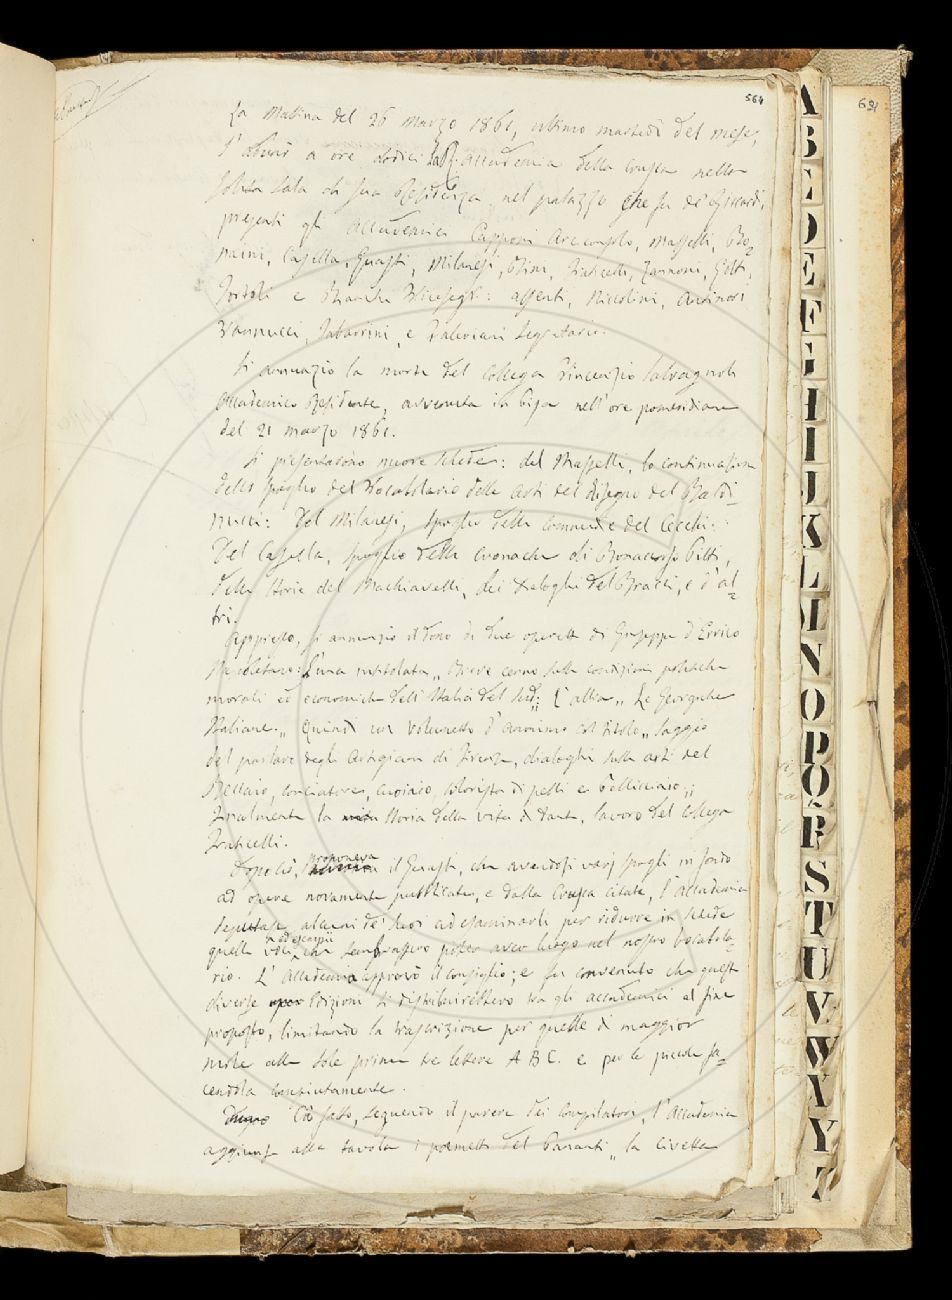 564
La Matina del 26 Marzo 1861, ultimo martedì del mese,
s'adunò a ore dodici la R. Accademia della Crusca nella
solita sala di sua Residenza, nel palazzo che fu de'
presenti gli Accademici Capponi Arciconsolo, Masselli, Bo-
naini, Casella, Guasti, Milanesi, Bini, Fraticelli, Zannoni,
e Bianchi Vicesegr.: assenti, Niccolini,
Vannucci, Tabarrini, e Valeriani Segretario.
Si annunziò la morte del Collega Vincenzio Salvagnoli
Accademico Residente, avvenuta in Pisa nell'ore pomeridiane
del 21 marzo 1861.
Si presentarono nuove schede: del Masselli, la continuazione
dello spoglio del Vocabolario delle Arti del disegno del Baldi-
nucci: Del Milanesi, spoglio delle Commedie del Cecchi:
Del Casella, spoglio della Cronache di Bonaccorso Pitti,
delle Storie del Machiavelli, dei Dialoghi del e d'al-
tri.
Appresso, si annunziò il dono di due operette di Giuseppe d'Errico
L'una intitolata „ Breve cenno sulle condizioni politiche
morali ed economiche dell'Italia del Sud„: L'altra „ Le Georgiche
Italiane„. Quindi un volumetto d'anonimo col titolo „ Saggio
del parlare degli Artigiani di Firenze, dialoghi sulle arti del
Sellaio, conciatore, cuoiaio, di pelli e Pellicciaio„:
Finalmente la Storia della vita di Dante, lavoro del Collega
Fraticelli.
Dopo ciò, proponeva il Guasti, che avendosi varj spogli in fondo
ad opere novamente pubblicate, e dalla Crusca citate, l'Accademia
deputasse alcuni de' suoi ad esaminarli per ridurre in schede
quelle voci ed esempii che sembrassero poter aver luogo nel nostro Vocabola-
rio. L'Accademia approvò il consiglio; e fu convenuto che queste
diverse Edizioni si distribuirebbero tra gli accademici al fine
proposto, limitando la trascrizione per quelle di maggior
mole alle sole prime tre lettere A B C. e per le piccole fa-
cendola
Ciò fatto, seguendo il parere dei Compilatori, l'Accademia
aggiunse alla tavola i poemetti del Pananti „ la Civetta
A
B
C
D
E
F
G
H
I
J
K
L
M
N
O
P
Q
R
S
T
U
V
W
X
Y
Z